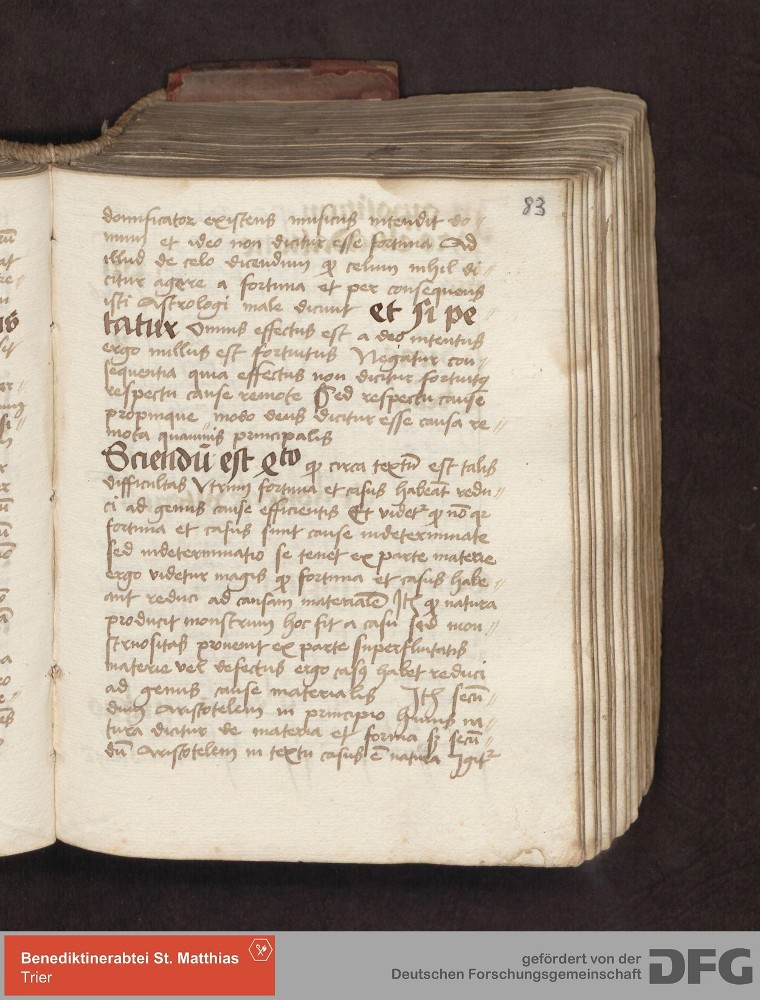 83
domificator existens musicus intendit do„
mum et ideo non dicitur esse fortuna Ad
illud de celo dicendum qꝫ celum nihil di„
citur agere a fortuna et per consequens
isti Astrologi male dicunt Et si pe„
tatur Omnis effectus est a deo intentus
ergo nullus est fortuitus Negatur con„
sequentia quia effectus non dicitur fortuitꝰ
respectu cause remote Sed respectu cause
propinque modo deus dicitur esse causa re„
mota quamuis principalis
Sciendū est qto qꝫ circa textū est talis
difficultas Vtrum fortuna et casus habeāt redu„
ci ad genus cause efficientis Et videtᷣ qꝫ nō qꝛ
fortuna et casus sunt cause indeterminate
sed indeterminatio se tenet ex parte materie
ergo videtur magis qꝫ fortuna et casus habe„
ant reduci ad causam materialē Itꝫ qꝫ natura
producit monstrum hoc fit a casu sed mon„
struositas prouenit ex parte superfluitatis
materie vel defectus ergo casꝰ habet reduci
ad genus cause materialis Itꝫ secū„
dum Aristotelem in principio huius na„
tura dicitur de materia et forma sꝫ secū„
dū Aristotelem in textu casus ē natura Igitᷣ
Benediktinerabtei St. Matthias
Trier
gefördert von der
Deutschen Forschungsgemeinschaft
DFG